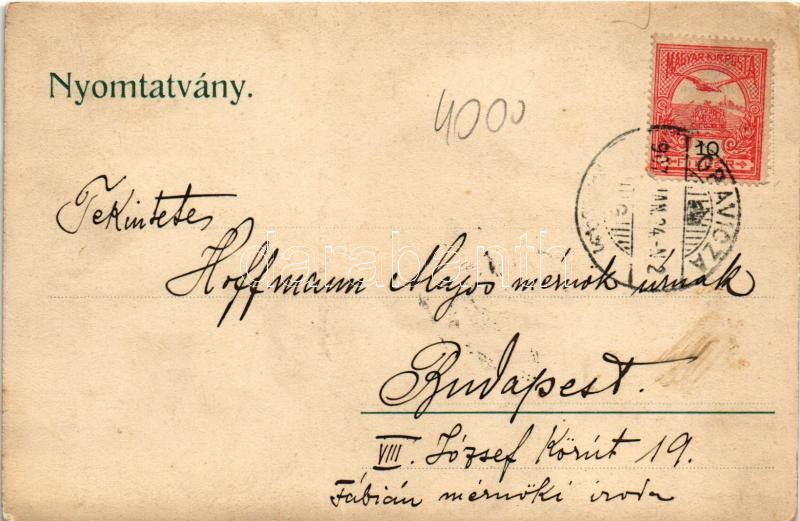 Nyomtatvány.
4000
MAGYAR KIR. POSTA
10
ORAVICZA
907 JAN. 24
Tekintetes
Hoffmann Alajos mérnök úrnak
Budapest.
VIII. József Körút 19.
Fábián mérnöki iroda
darabanth